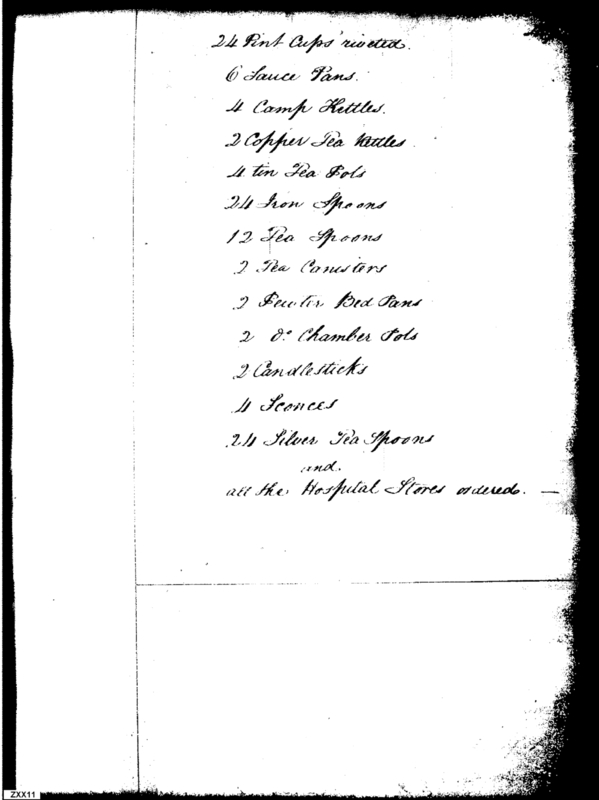 24 Pint Cups riveted.
6 Sauce Pans.
4 Camp Kettles.
2 Copper Tea Kettles
4 tin Tea Pots
24 Iron Spoons
12 Tea Spoons
2 Tea Canisters
2 Pewter Bed Pans
2 Do Chamber Pots
2 Candlesticks
4 Sconces
24 Silver Tea Spoons
and.
all the Hospital Stores ordered. —
ZXX11